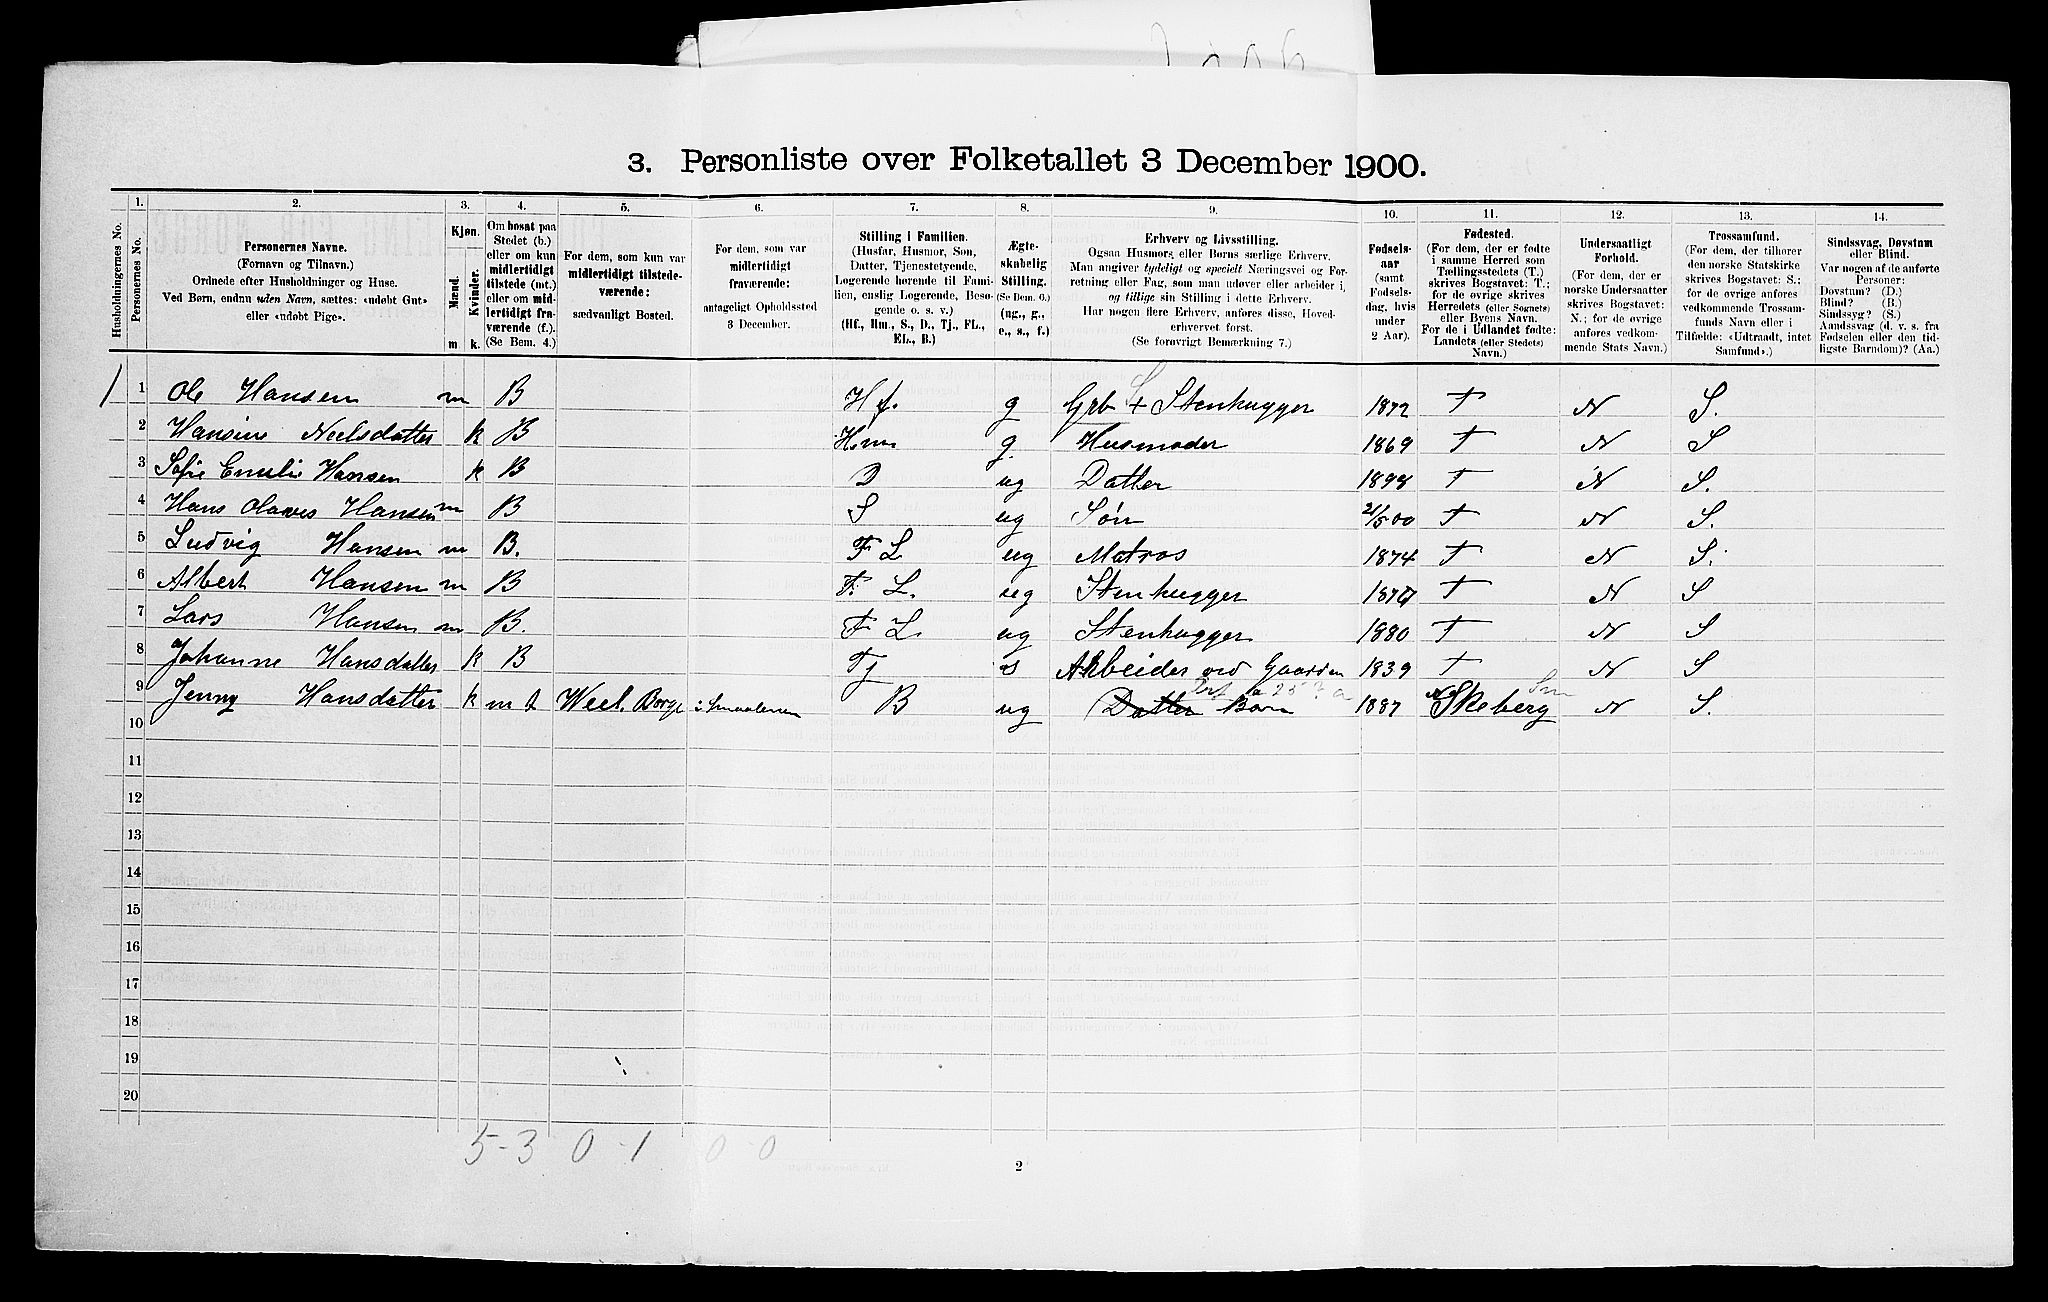 3. Personliste over Folketallet 3 December 1900.
Husholdningernes No.
1. Personernes No.
2. Personernes Navne.
(Fornavn og Tilnavn.)
Ordnede efter Husholdninger og Huse.
Ved Børn, endnu uden Navn, sættes: «udøbt Gut»
eller «udøbt Pige».
3. Kjøn.
Mænd. m
Kvinder. k.
4. Om bosat paa
Stedet (b.)
eller om kun
midlertidigt
tilstede (mt.)
eller om mid-
lertidigt fra-
værende (f.).
(Se Bem. 4.)
5. For dem, som kun var
midlertidigt tilstede-
værende:
sædvanligt Bosted.
6. For dem, som var
midlertidigt
fraværende:
antageligt Opholdssted
3 December.
7. Stilling i Familien.
(Husfar, Husmor, Søn,
Datter, Tjenestetyende,
Logerende hørende til Fami-
lien, enslig Logerende, Besø-
gende o. s. v.)
(Hf., Hm., S., D., Tj., FL.,
EL., B.)
8. Ægte-
skabelig
Stilling.
(Se Bem. 6.)
(ug., g.,
e., s., f.)
9. Erhverv og Livsstilling.
Ogsaa Husmors eller Børns særlige Erhverv.
Man angiver tydeligt og specielt Næringsvei og For-
retning eller Fag, som man udøver eller arbeider i,
og tillige sin Stilling i dette Erhverv.
Har nogen flere Erhverv, anføres disse, Hoved-
erhvervet først.
(Se forøvrigt Bemærkning 7.)
10. Fødsels-
aar
(samt
Fødsels-
dag, hvis
under
2 Aar).
11. Fødested.
(For dem, der er fødte
i samme Herred som
Tællingsstedets (T.)
skrives Bogstavet: T.;
for de øvrige skrives
Herredets (eller Sognets)
eller Byens Navn.
For de i Udlandet fødte:
Landets (eller Stedets)
Navn.)
12. Undersaatligt
Forhold.
(For dem, der er
norske Undersaatter
skrives Bogstavet:
N.; for de øvrige
anføres vedkom-
mende Stats Navn.)
13. Trossamfund.
(For dem, der tilhører
den norske Statskirke
skrives Bogstavet: S.;
for de øvrige anføres
vedkommende Trossam-
funds Navn eller i
Tilfælde: «Udtraadt, intet
Samfund».)
14. Sindssvag, Døvstum
eller Blind.
Var nogen af de anførte
Personer:
Døvstum? (D.)
Blind? (B.)
Sindssyg? (S.)
Aandssvag (d. v. s. fra
Fødselen eller den tid-
ligste Barndom)? (Aa.)
1 1 Ole Hansen m B Hf. g Grb + Stenhugger 1872 T N S.
2 Hansine Neelsdatter k B Hm g. Husmoder 1869 T N S
3 Sofie Emelie Hansen k B D ug Datter 1898 T N S.
4 Hans Olaves Hansen m B S ug Søn 21/5 00 T N S.
5 Ludvig Hansen m B. F L ug Matros 1874 T N S.
6 Albert Hansen m B F. L. ug Stenhugger 1877 T N S
7 Lars Hansen m B. F L. ug Stenhugger 1880 T N S
8 Johanne Hansdatter k B Tj s Arbeider ved Gaarden 1839 T N S
9 Jenny Hansdatter k m t Weel. Borge i Smaalenene B ug Datter Barn 1887 Skeberg N S.
10
11
12
13
14
15
16
17
18
19
20
5-3 0-1 0-0
2